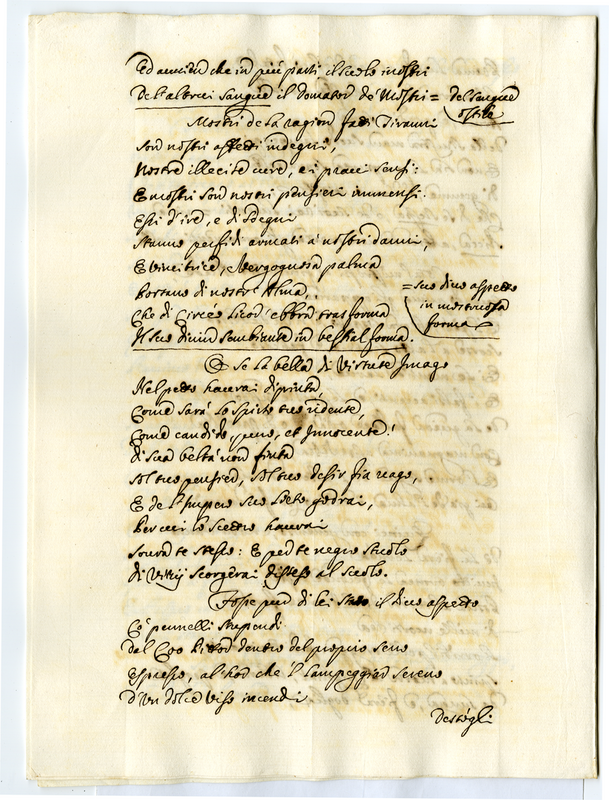 Ed avvien che in più parti il suolo inostri
De l'altrui sangue il domator de' Mostri = del sangue
ostile
Mostri de la ragion fatti Tiranni
son nostri affetti indegni,
Nostre illecite cure, e i pravi sensi:
E mostri son nostri pensieri immensi.
Essi d'ire, e di sdegni
stanno perfidi armati a' nostri danni,
E vincitrice, e vergognosa palma
Portano di nostr' Alma,
= suo divo aspetto
Che di Circeo licor' ebbra trasforma
in mostruosa
forma
Il suo divin sembiante in bestial forma.
O se la bella di Virtute Imago
Nel petto haurai dipinta,
Come sarà lo spirto tuo ridente,
Come candido, puro, et Innocente!
di sua beltà non finta
sol tuo pensier, sol tuo desir fia vago,
E de l'impero suo lieto godrai,
Per cui lo scettro haurai
sovra te stesso: E per te negro stuolo
di Vitij scorgerai disteso al suolo.
Fosse pur di lei stato il divo aspetto
Co' pennelli stupendi
dal Coo Pittor dentro del proprio seno
Espresso, al'hor che 'l lampeggiar sereno
d'un dolce viso incendi
destògli